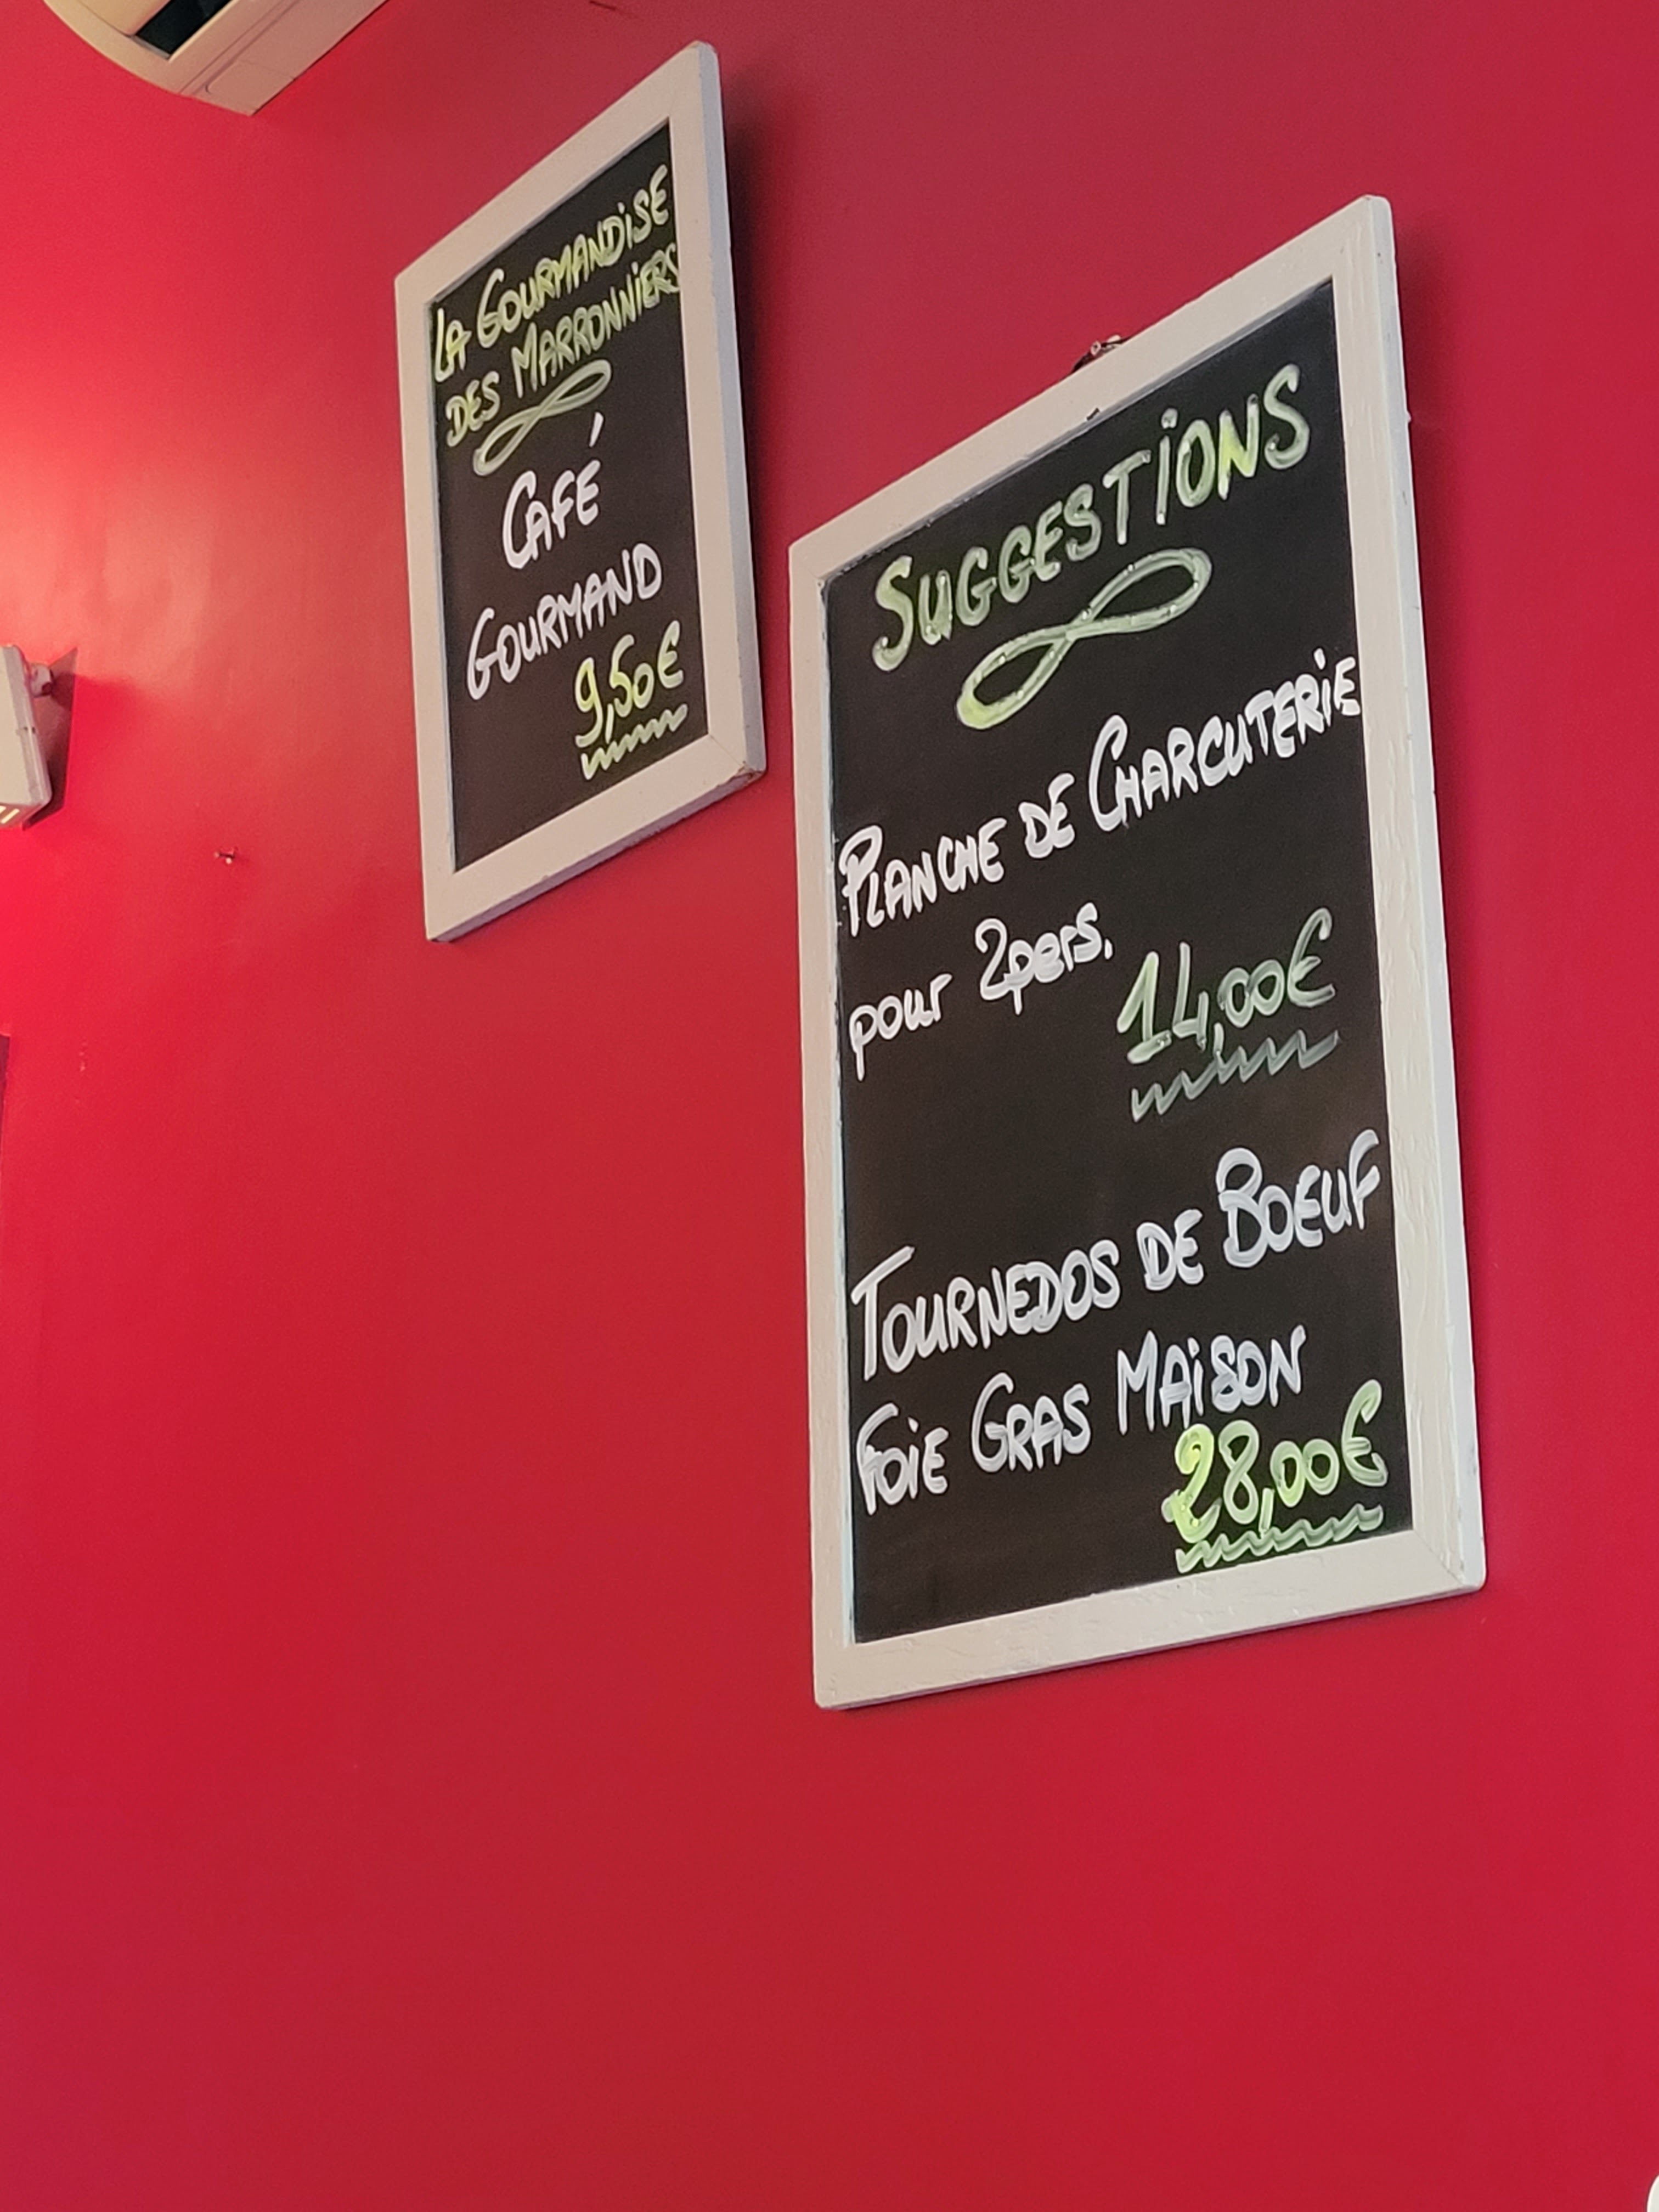 LA GOURMANDISE
DES MARRONNIERS
CAFÉ
GOURMAND
9,50€
SUGGESTIONS
PLANCHE DE CHARCUTERIE
pour 2pers.
14,00€
TOURNEDOS DE BOEUF
FOIE GRAS MAISON
28,00€